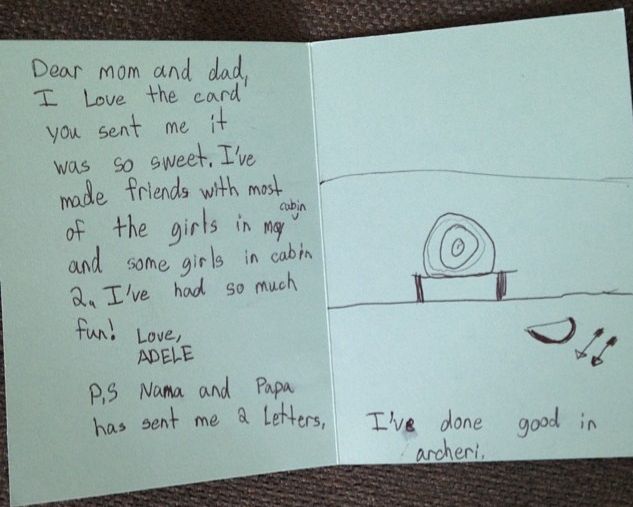 Dear mom and dad,
I Love the card
you sent me it
was so sweet. I've
made friends with most
of the girls in my cabin
and some girls in cabin
2. I've had so much
fun! Love,
ADELE
P,S Nama and Papa
has sent me 2 Letters.
I've done good in
archeri.